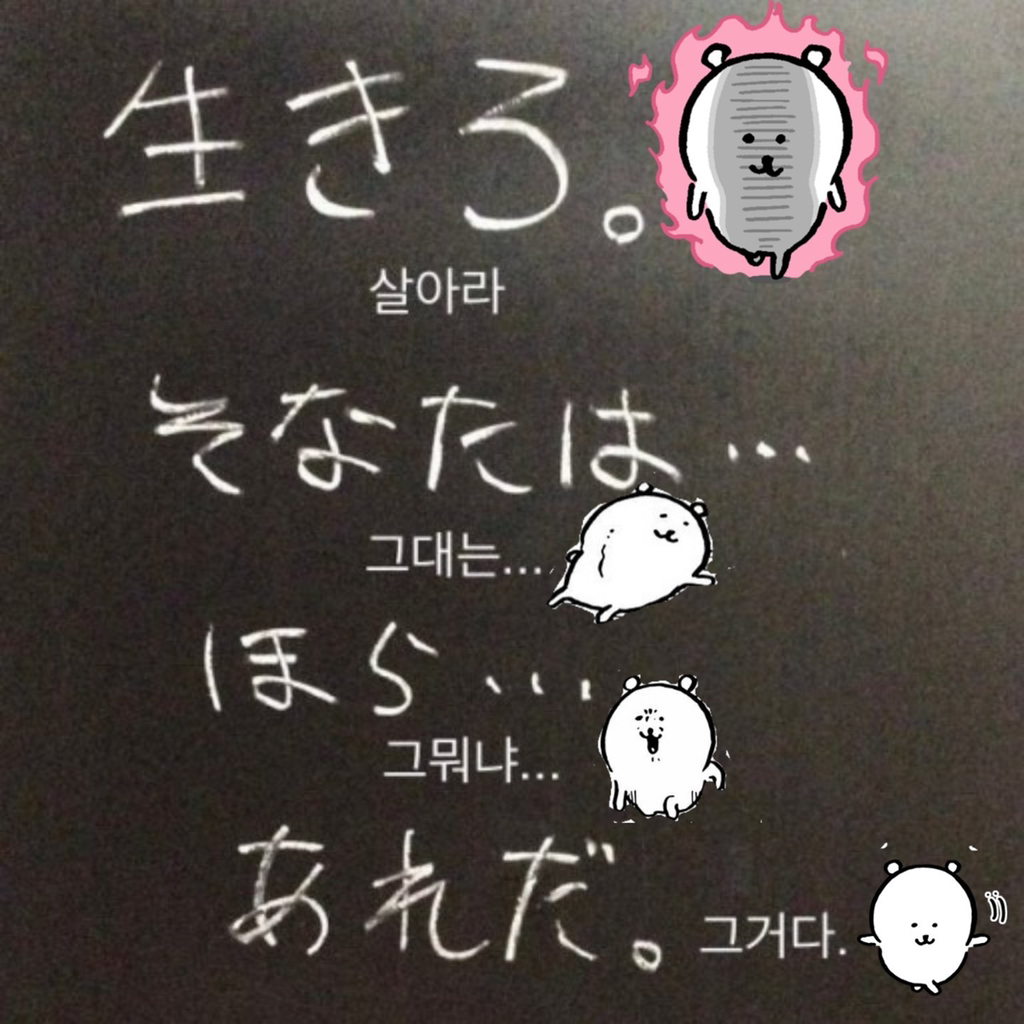 生きろ。
살아라
そなたは…
그대는...
ほら…
그뭐냐...
あれだ。
그거다.